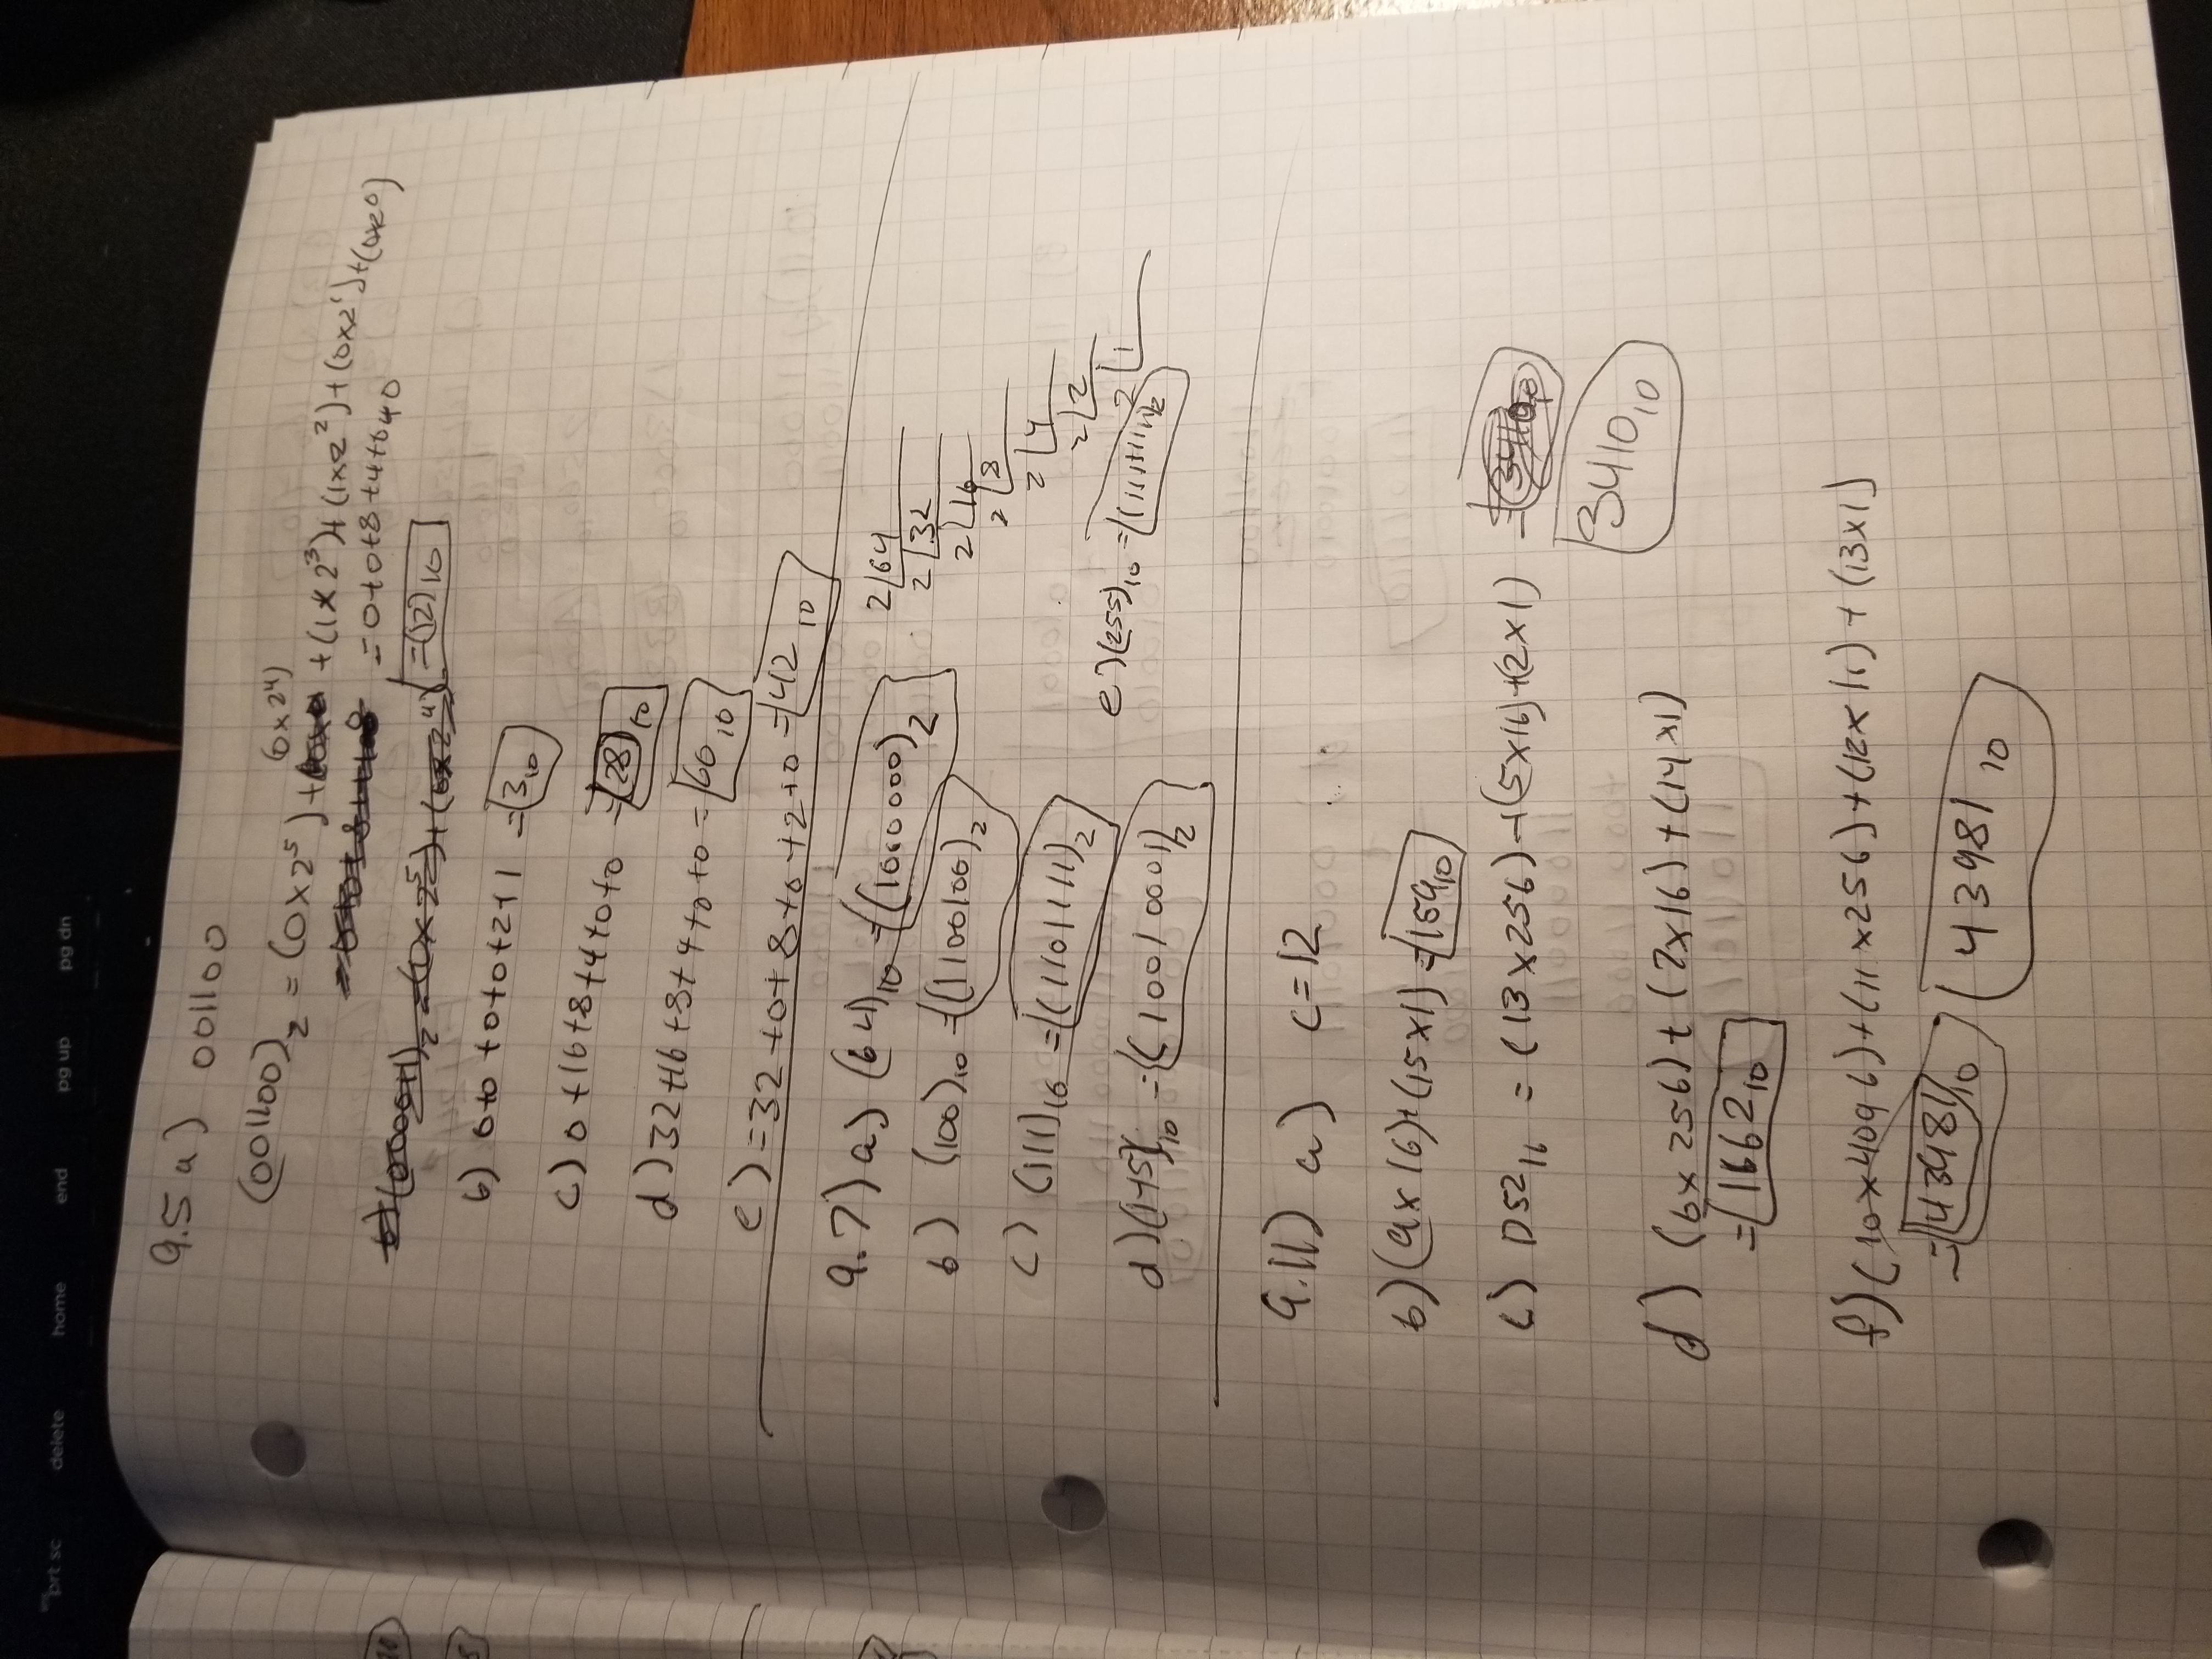 prt sc delete home end pg up pg dn
9.5 a) 001100
(001100)₂ = (0×2⁵)+ (0×2⁴) +(1×2³)+(1×2²)+(0×2¹)+(0×2⁰)
=0+0+8+4+0+0
=(12)₁₀
b) 0+0+0+0+2+1 = 3₁₀
c) 0+16+8+4+0+0 = (28)₁₀
d) 32+16+8+4+0+0 = 60₁₀
e) =32+0+8+0+2+0 = 42₁₀
9.7) a) (64)₁₀ = (1000000)₂
2/64
2/32
2/16
2/8
2/4
2/2
2/1
b) (100)₁₀ = (1100100)₂
c) (111)₁₀ = (1101111)₂
d) (145)₁₀ = (10010001)₂
e) (255)₁₀ = (11111111)₂
9.11) a) C=12
b) (9×16)+(15×1) = 159₁₀
c) D52₁₆ = (13×256)+(5×16)+(2×1) =
3410₁₀
d) (6×256)+(7×16)+(14×1)
= 1662₁₀
f) (10×4096)+(11×256)+(12×16)+(13×1)
= 43981₁₀ 43981₁₀